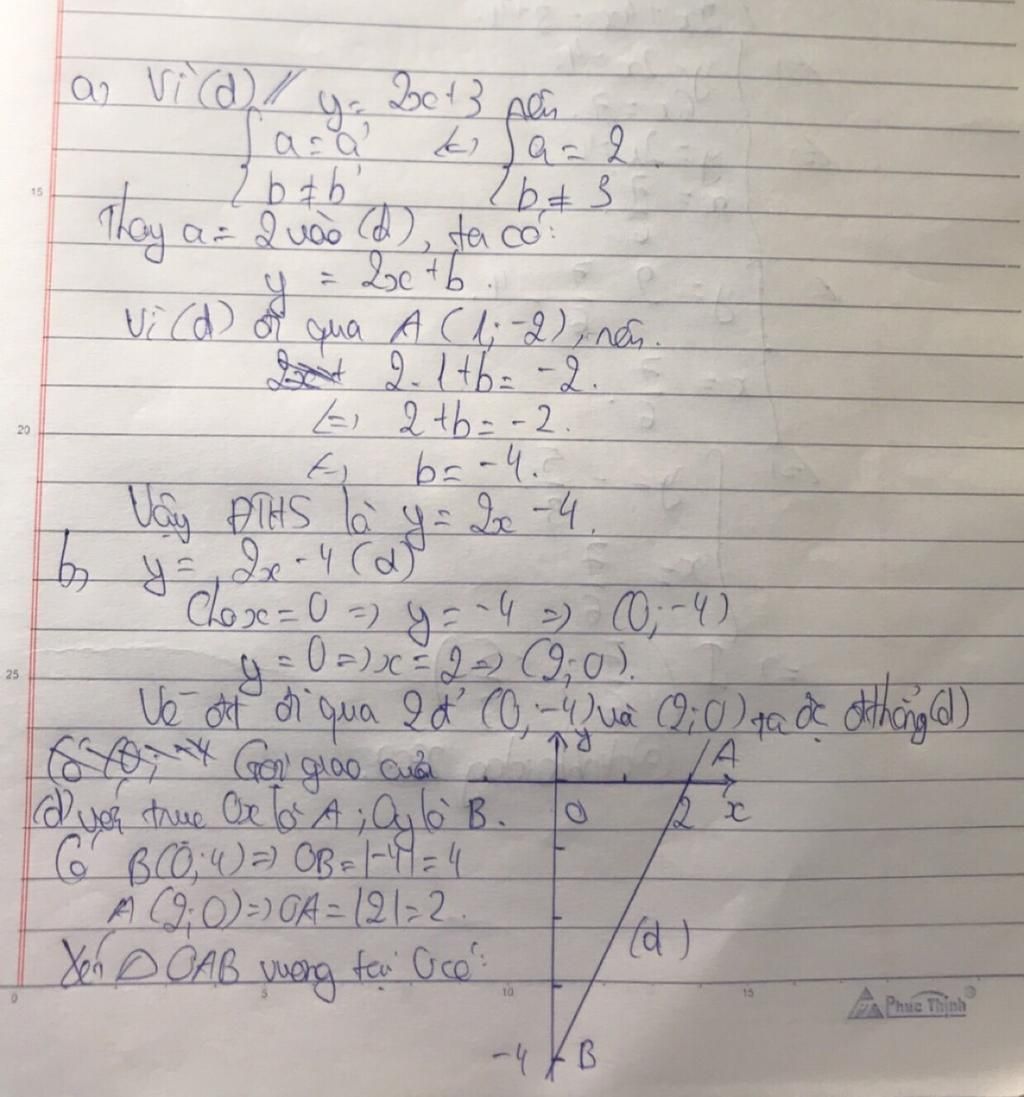 a, Vì (d) // y = 2x+3 nên
{ a = a' <=> { a = 2
{ b ≠ b' { b ≠ 3
Thay a = 2 vào (d), ta có:
y = 2x + b.
Vì (d) đi qua A (1; -2), nên.
2x+ 2.1+b = -2.
<=> 2 + b = -2.
<=> b = -4.
Vậy ĐTHS là y = 2x - 4.
b, y = 2x - 4 (d)
Cho x = 0 => y = -4 => (0; -4)
y = 0 => x = 2 => (2; 0).
Vẽ đt đi qua 2 đ' (0; -4) và (2; 0) ta đc đthẳng (d)
Có (0; -4 Gọi giao của
(d) với trục Ox là A; Oy là B.
Có B(0; 4) => OB = |-4| = 4
A (2; 0) => OA = |2| = 2.
Xét △OAB vuông tại O có:
y
A
O
2
x
(d)
-4
B
15
20
25
0
5
10
15
Phúc Thịnh